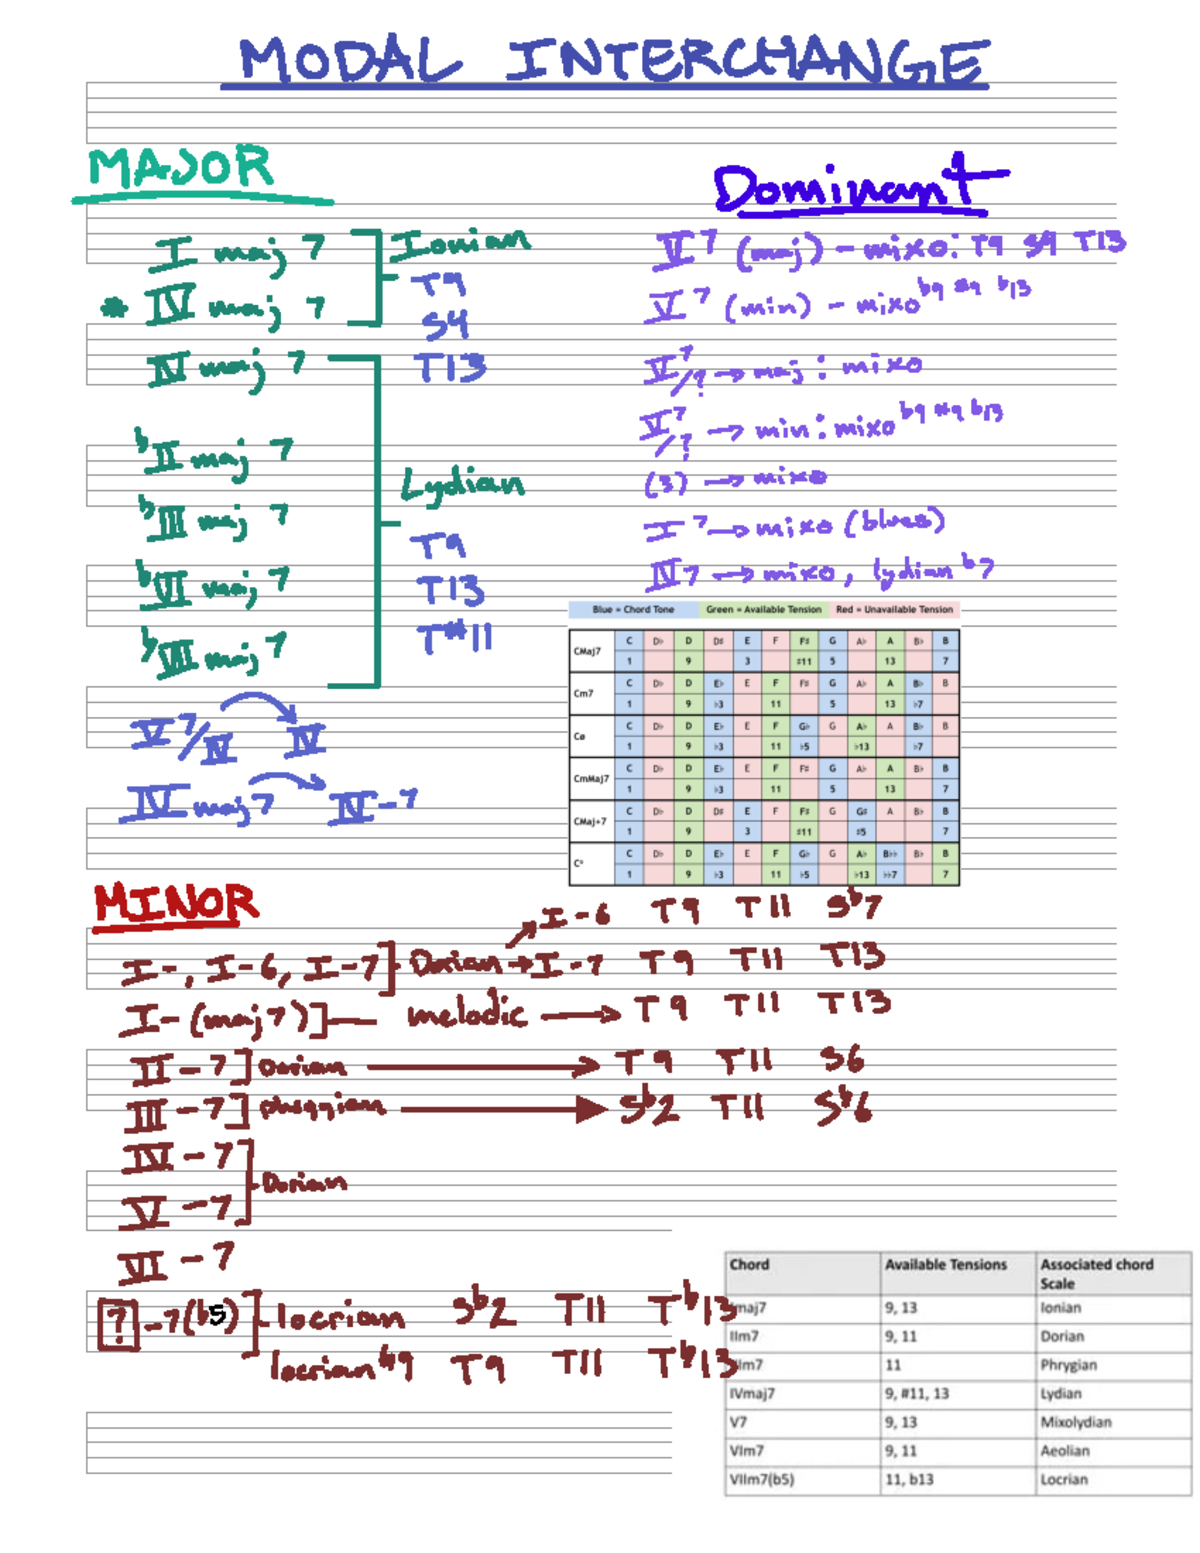 MODAL INTERCHANGE
MAJOR
I maj 7
* IV maj 7
Ionian
T9
S4
T13
IV maj 7
bII maj 7
bIII maj 7
bVI maj 7
bVII maj 7
Lydian
T9
T13
T#11
V7/IV IV
IV maj 7 IV-7
Dominant
V7 (maj) - mixo: T9 S4 T13
V7 (min) - mixo b9 #9 b13
V7/? → maj: mixo
V7/? → min: mixo b9 #9 b13
→ mixo
I7 → mixo (blues)
IV7 → mixo, lydian b7
Blue = Chord Tone Green = Available Tension Red = Unavailable Tension
CMaj7 C D♭ D D♯ E F F♯ G A♭ A B♭ B
1 9 3 ♯11 5 13 7
Cm7 C D♭ D E♭ E F F♯ G A♭ A B♭ B
1 9 ♭3 11 5 13 ♭7
Cø C D♭ D E♭ E F G♭ G A♭ A B♭ B
1 9 ♭3 11 ♭5 ♭13 ♭7
CmMaj7 C D♭ D E♭ E F F♯ G A♭ A B♭ B
1 9 ♭3 11 5 13 7
CMaj+7 C D♭ D D♯ E F F♯ G G♯ A B♭ B
1 9 3 ♯11 ♯5 7
C° C D♭ D E♭ E F G♭ G A♭ B♭♭ B♭ B
1 9 ♭3 11 ♭5 ♭13 ♭♭7 7
MINOR
I-, I-6, I-7] Dorian
→ I-6 T9 T11 Sb7
→ I-7 T9 T11 T13
I-(maj7)] — melodic → T9 T11 T13
II-7] Dorian → T9 T11 S6
III-7] phrygian → Sb2 T11 Sb6
IV-7
V-7
Dorian
VI-7
?-7(b5)] locrian Sb2 T11 Tb13
locrian ♮9 T9 T11 Tb13
Chord Available Tensions Associated chord
Scale
maj7 9, 13 Ionian
IIm7 9, 11 Dorian
Im7 11 Phrygian
IVmaj7 9, #11, 13 Lydian
V7 9, 13 Mixolydian
VIm7 9, 11 Aeolian
VIIm7(b5) 11, b13 Locrian